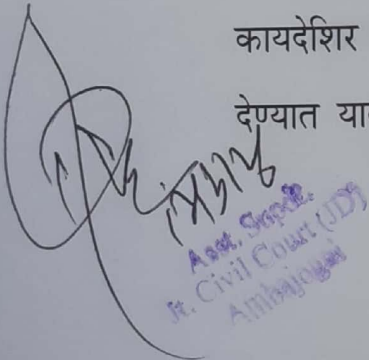 कायदेशिर
देण्यात या
Asst. Supdt.
Jt. Civil Court (JD)
Ambajogai